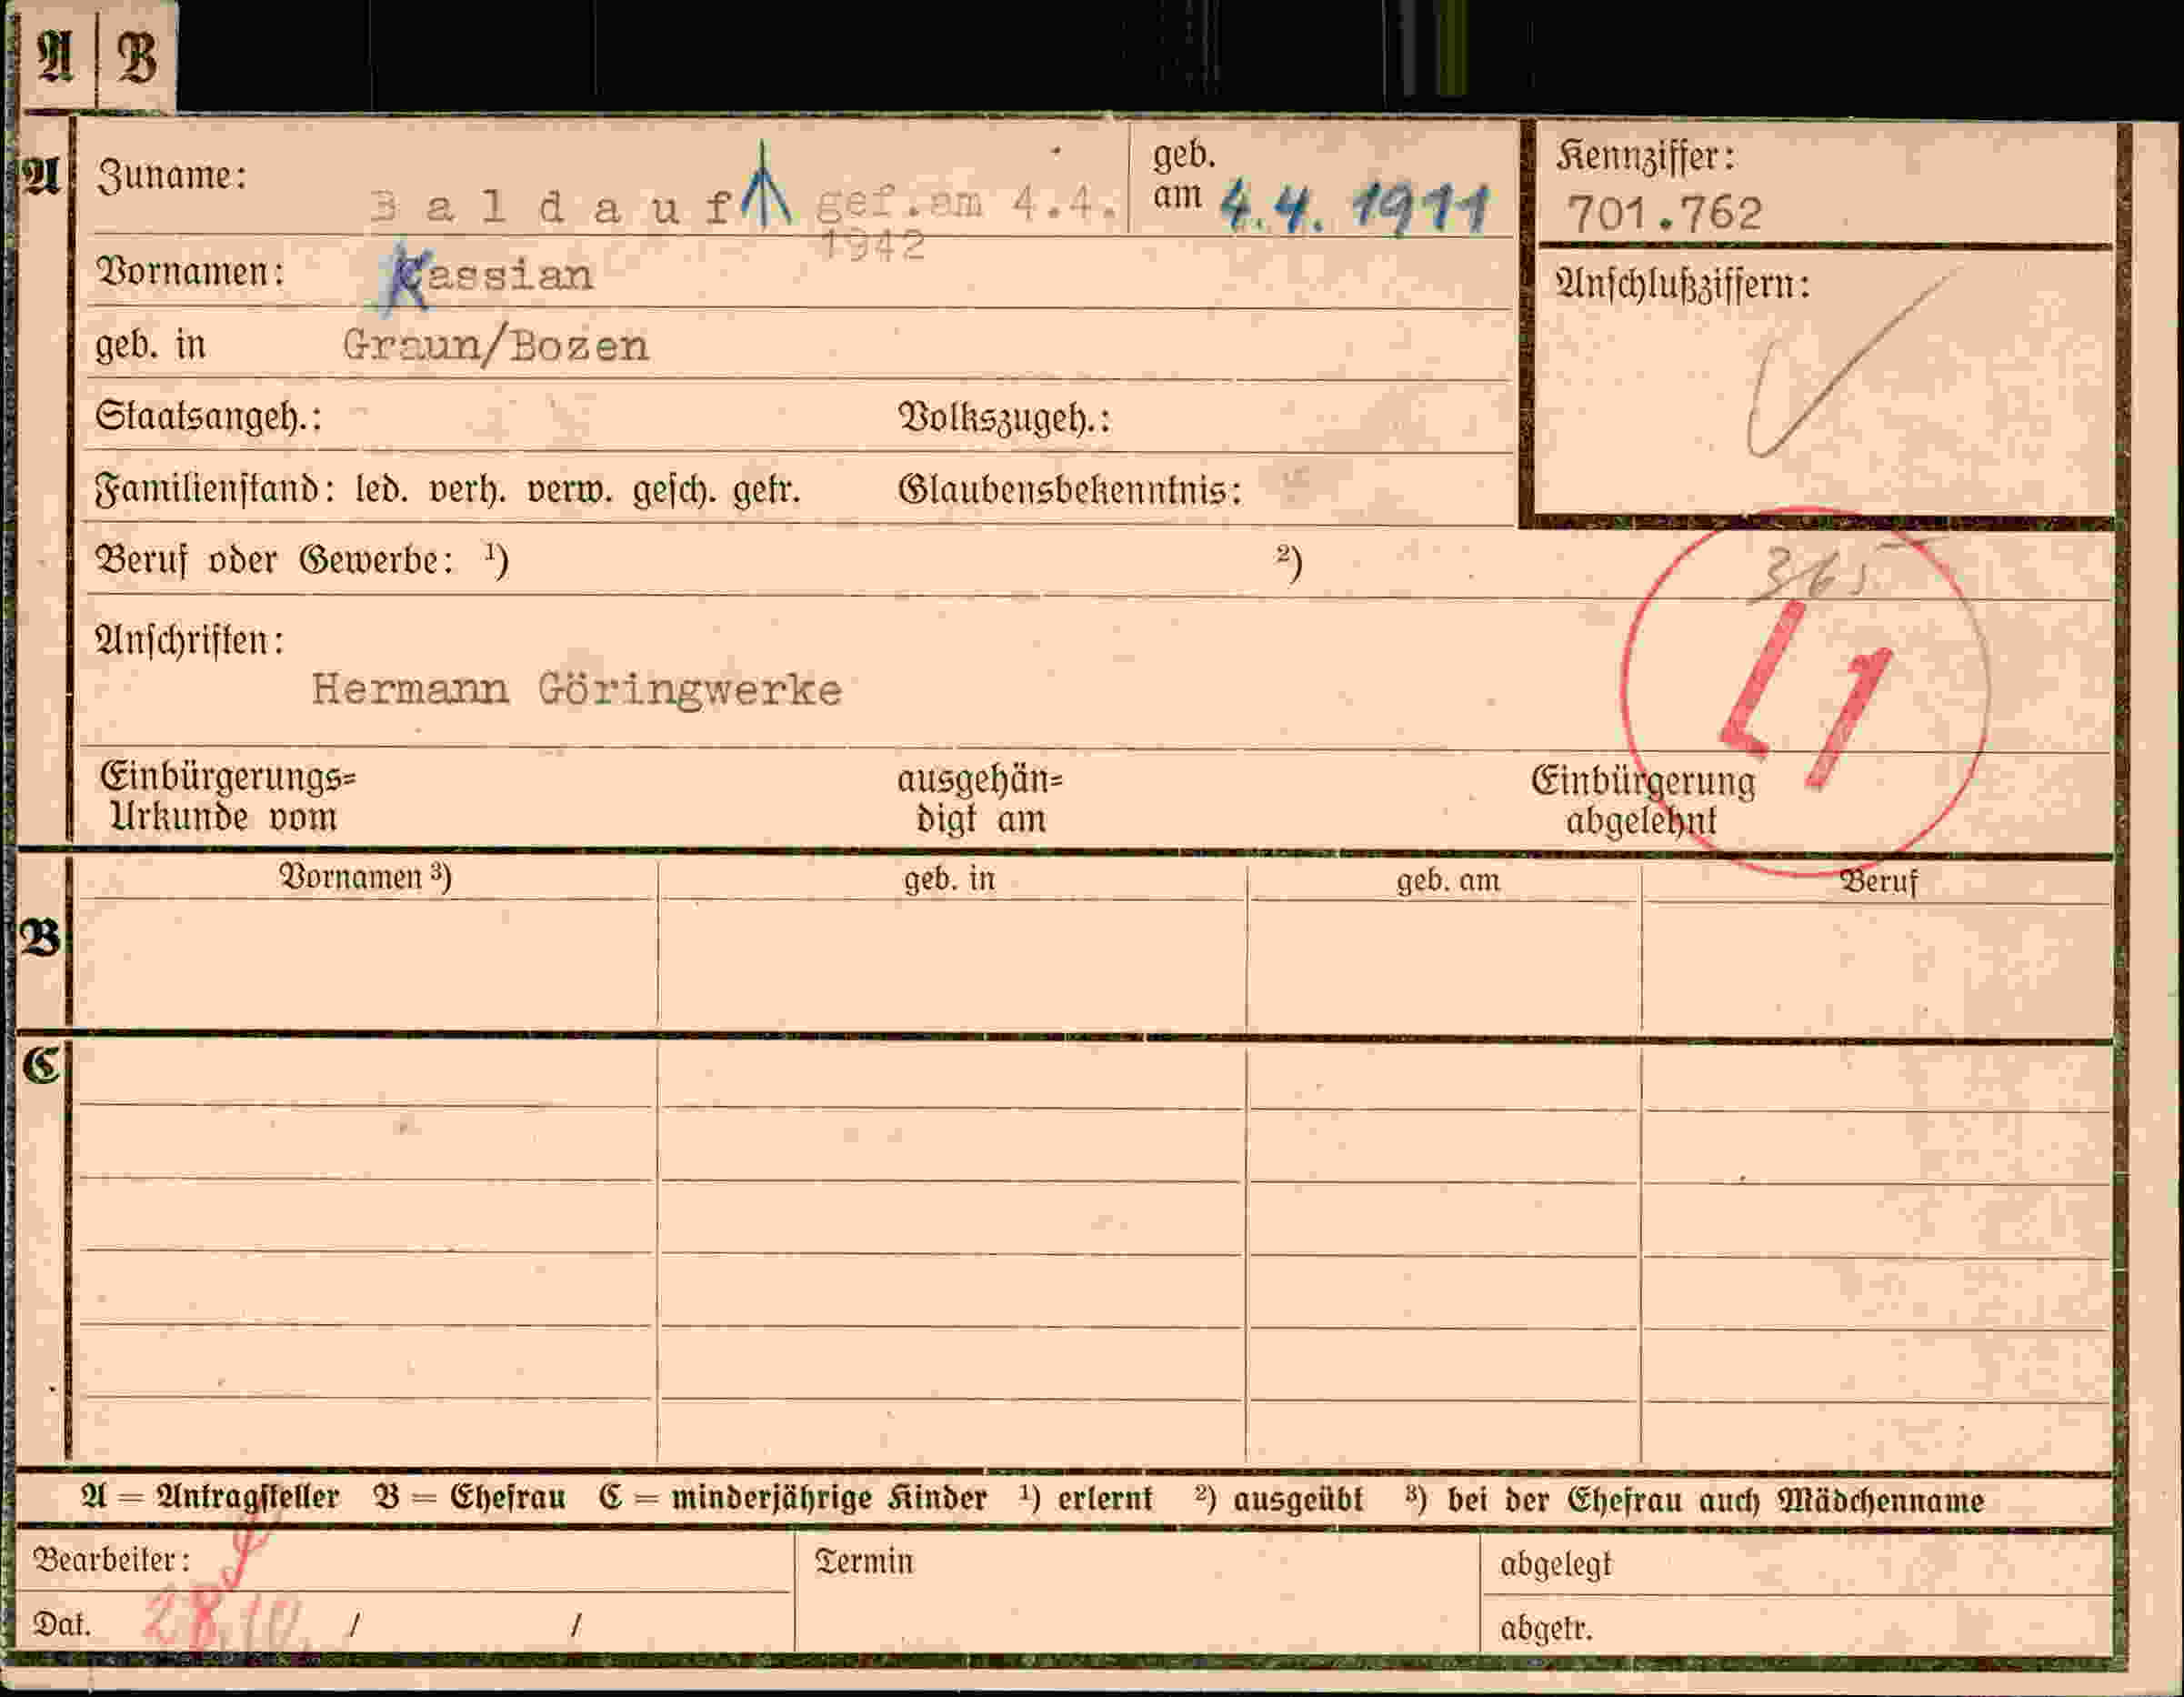 A B
A Zuname: Baldauf gef. am 4.4. geb. am 4.4.1911 Kennziffer: 701.762
1942
Vornamen: Kassian
Anschlußziffern:
geb. in Graun/Bozen
Staatsangeh.: Volkszugeh.:
Familienstand: led. verh. verw. gesch. getr. Glaubensbekenntnis:
Beruf oder Gewerbe: ¹) ²)
365
Anschriften:
Hermann Göringwerke
L1
Einbürgerungs= ausgehän= Einbürgerung
Urkunde vom digt am abgelehnt
Vornamen ³) geb. in geb. am Beruf
B
C
A = Antragsteller B = Ehefrau C = minderjährige Kinder ¹) erlernt ²) ausgeübt ³) bei der Ehefrau auch Mädchenname
Bearbeiter: Termin abgelegt
Dat. 28.10. / / abgetr.